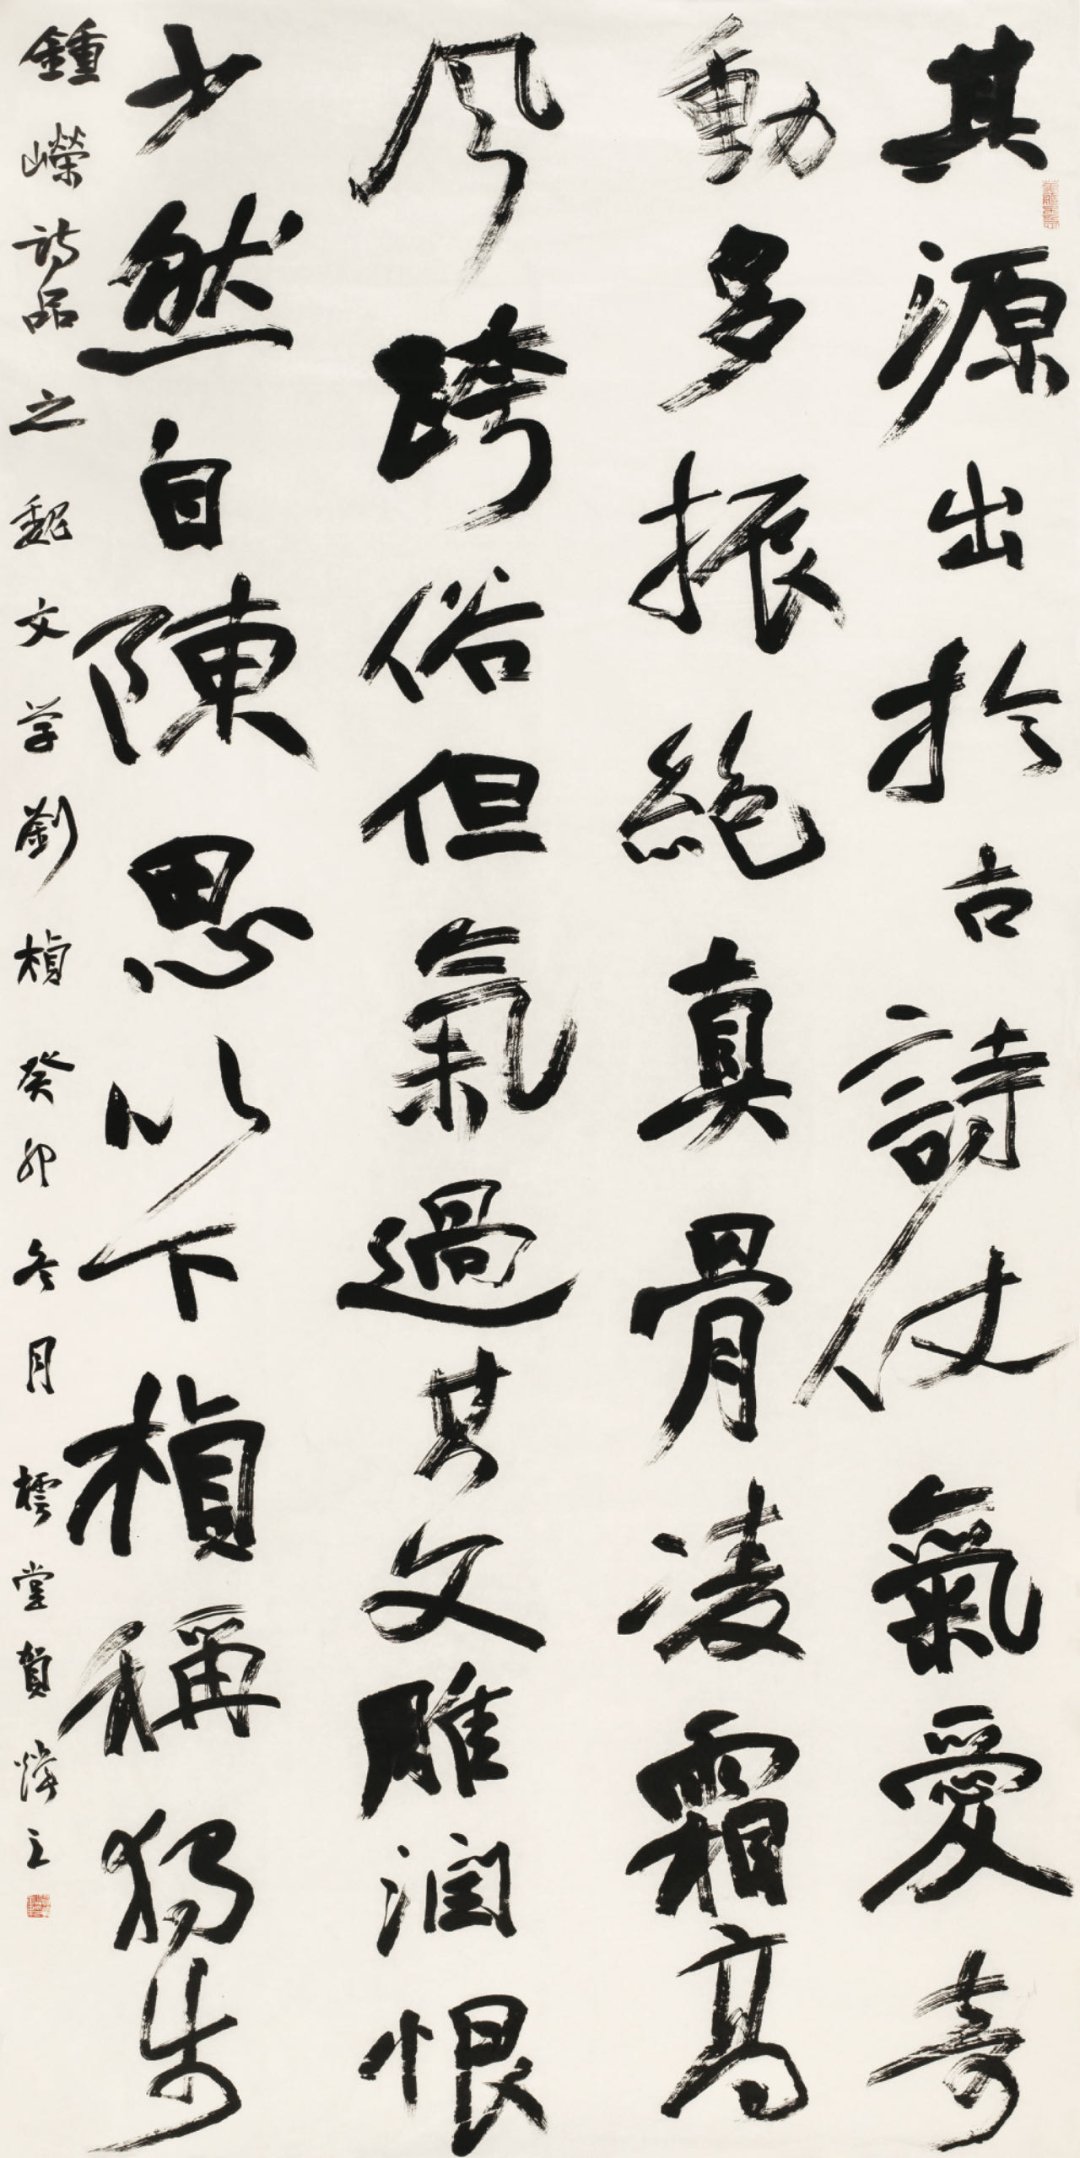 其源出於古詩仗氣愛奇
動多振絕真骨凌霜高
風跨俗但氣過其文雕潤恨
少然自陳思以下楨稱獨步
鍾嶸詩品之魏文学劉楨癸卯冬月堂賀煒